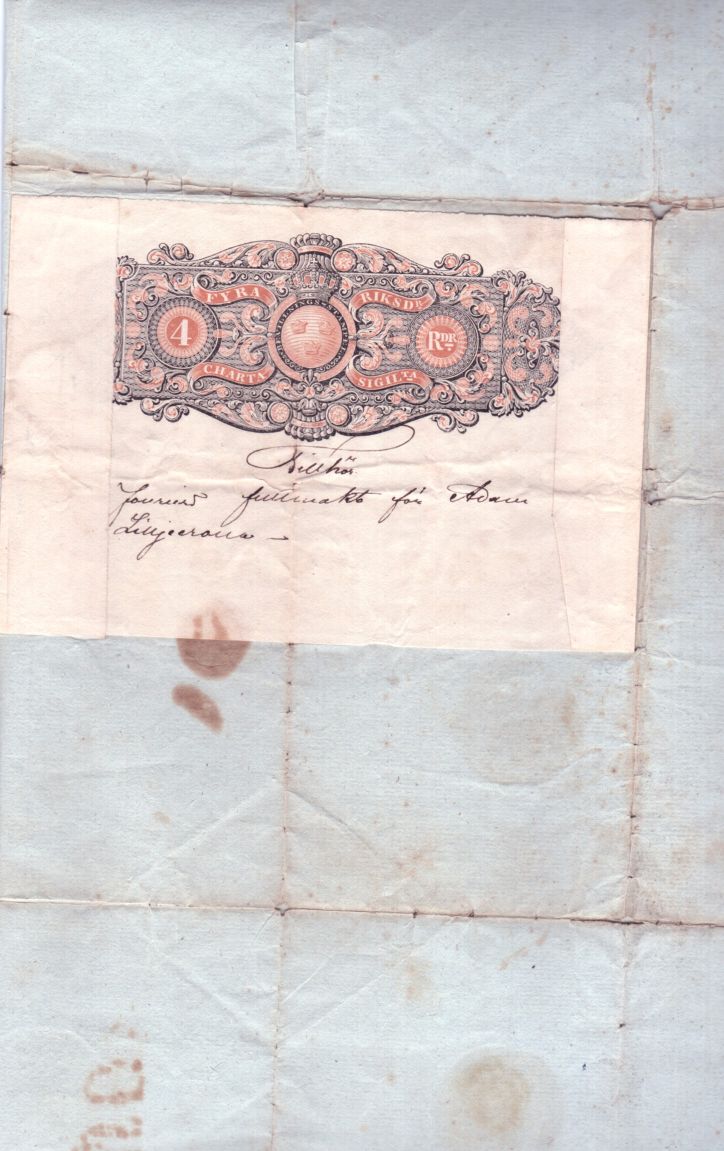 FYRA RIKSDR
4 RDR
CHARTA SIGILTA
Tillhör
fouriers fullmakt för Adam
Liljecrona